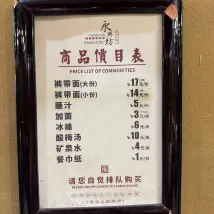 永兴坊
商品價目表
PRICE LIST OF COMMODITIES
裤带面(大份) ¥17元/份
裤带面(小份) ¥14元/份
蘸汁 ¥5元/份
加面 ¥3元/份
冰峰 ¥6元/瓶
酸梅汤 ¥10元/杯
矿泉水 ¥4元/瓶
餐巾纸 ¥1元/包
请您自觉排队购买